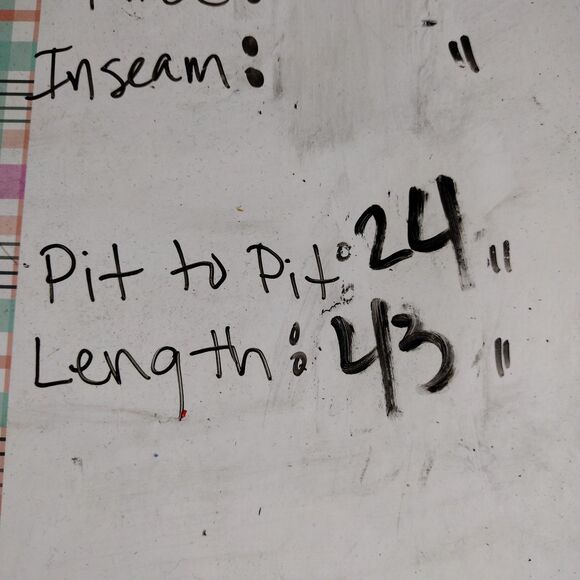 Inseam: "
Pit to Pit: 24"
Length: 43"